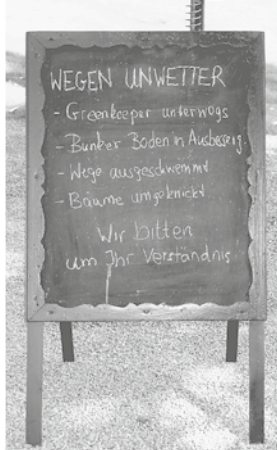 WEGEN UNWETTER
- Greenkeeper unterwegs
- Bunker Boden in Ausbesserg.
- Wege ausgeschwemmt
- Bäume umgeknickt
Wir bitten
um Ihr Verständnis